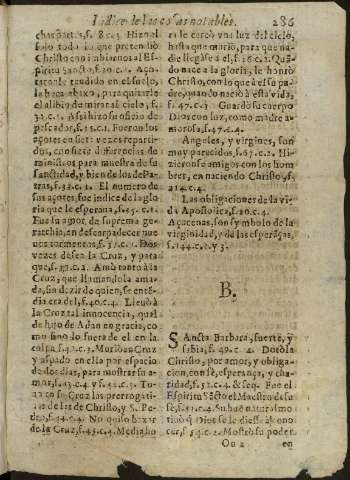 Indice de las cosas notables. 286
char patria, f. 8. c. 3. Hizo el
solo todo lo que pretendiò
Christo con imbiarnos al Es-
piritu Sancto, f. 20. c. 2. Aço-
taronle tendido en el suelo,
la boca abaxo, para quitarle
el alibio de mirar al cielo, f.
32. c. 1. Assi hizo su oficio de
pescador, f. 15. c. 1. Fueron los
açotes en siete vezes reparti-
dos, con siete differencias de
ministros para muestra de su
sanctidad, y bien de los de Pa-
tras, f. 33. c. 1. El numero de
sus açotes, fue indice de la glo
ria que le esperaua, f. 35. c. 1.
Fue la mayor de suprema ge-
rarchia, en desear padecer nue
uos tormentos, f. 37. c. 1. Dos
vezes desea la Cruz, y para
que, f. 39. c. 2. Amò tanto à la
Cruz, que llamandola ama-
da, sin dezir de quien, se enté-
dia era del, f. 40. c. 4. Lleuò à
la Cruz tal innocencia, qual
de hijo de Adan en gracia, co
mo sino lo fuera de el en la
culpa, f. 42. c. 3. Murio en Cruz
y aspado en ella por espacio
de dos dias, para mostrar su a-
mor, f. 43. c. 4. y f. 44. c. 3. To-
mò en su Cruz las prerrogati-
uas de las de Christo, y S. Pe-
dro, f. 44. c. 4. No quiso baxar
de la Cruz, f. 45. c. 4. Media ho
ra le cercò vna luz del cielo,
hasta que murio, para que na-
die llegasse a el, f. 46. c. 2. Quã-
do nace a la gloria, le honrò
Christo, con lo que a èl su pa-
dre, quando naciò à esta vida,
f. 47. c. 3. Guardò su cuerpo
Dios con luz, como madre a-
morosa, f. 47. c. 4.
Angeles, y virgines, son
muy parecidos, f. 67. c. 2. Hi-
zieronse amigos con los hom
bres, en naciendo Christo, f.
214. c. 4.
Las obligaciones de la vi-
da Apostolica, f. 20. c. 4.
Açucenas, son symbolo de la
virginidad, y de las esperãças,
f. 144. c. 2. y 3.
B.
SAncta Barbara, fuerte, y
sabia, f. 49. c. 4. Dotòla
Christo, por amor, y obliga-
cion, con fè, esperança, y cha-
ridad, f. 52. c. 4. & seq. Fue el
Espiritu Sãcto el Maestro de su
fè, f. 52. c. 4. Su luz natural mo
tiuò q̃ Dios se le diesse a cono
cer, f. 54. c. 2. Mostrò su poder
Oo 2 en